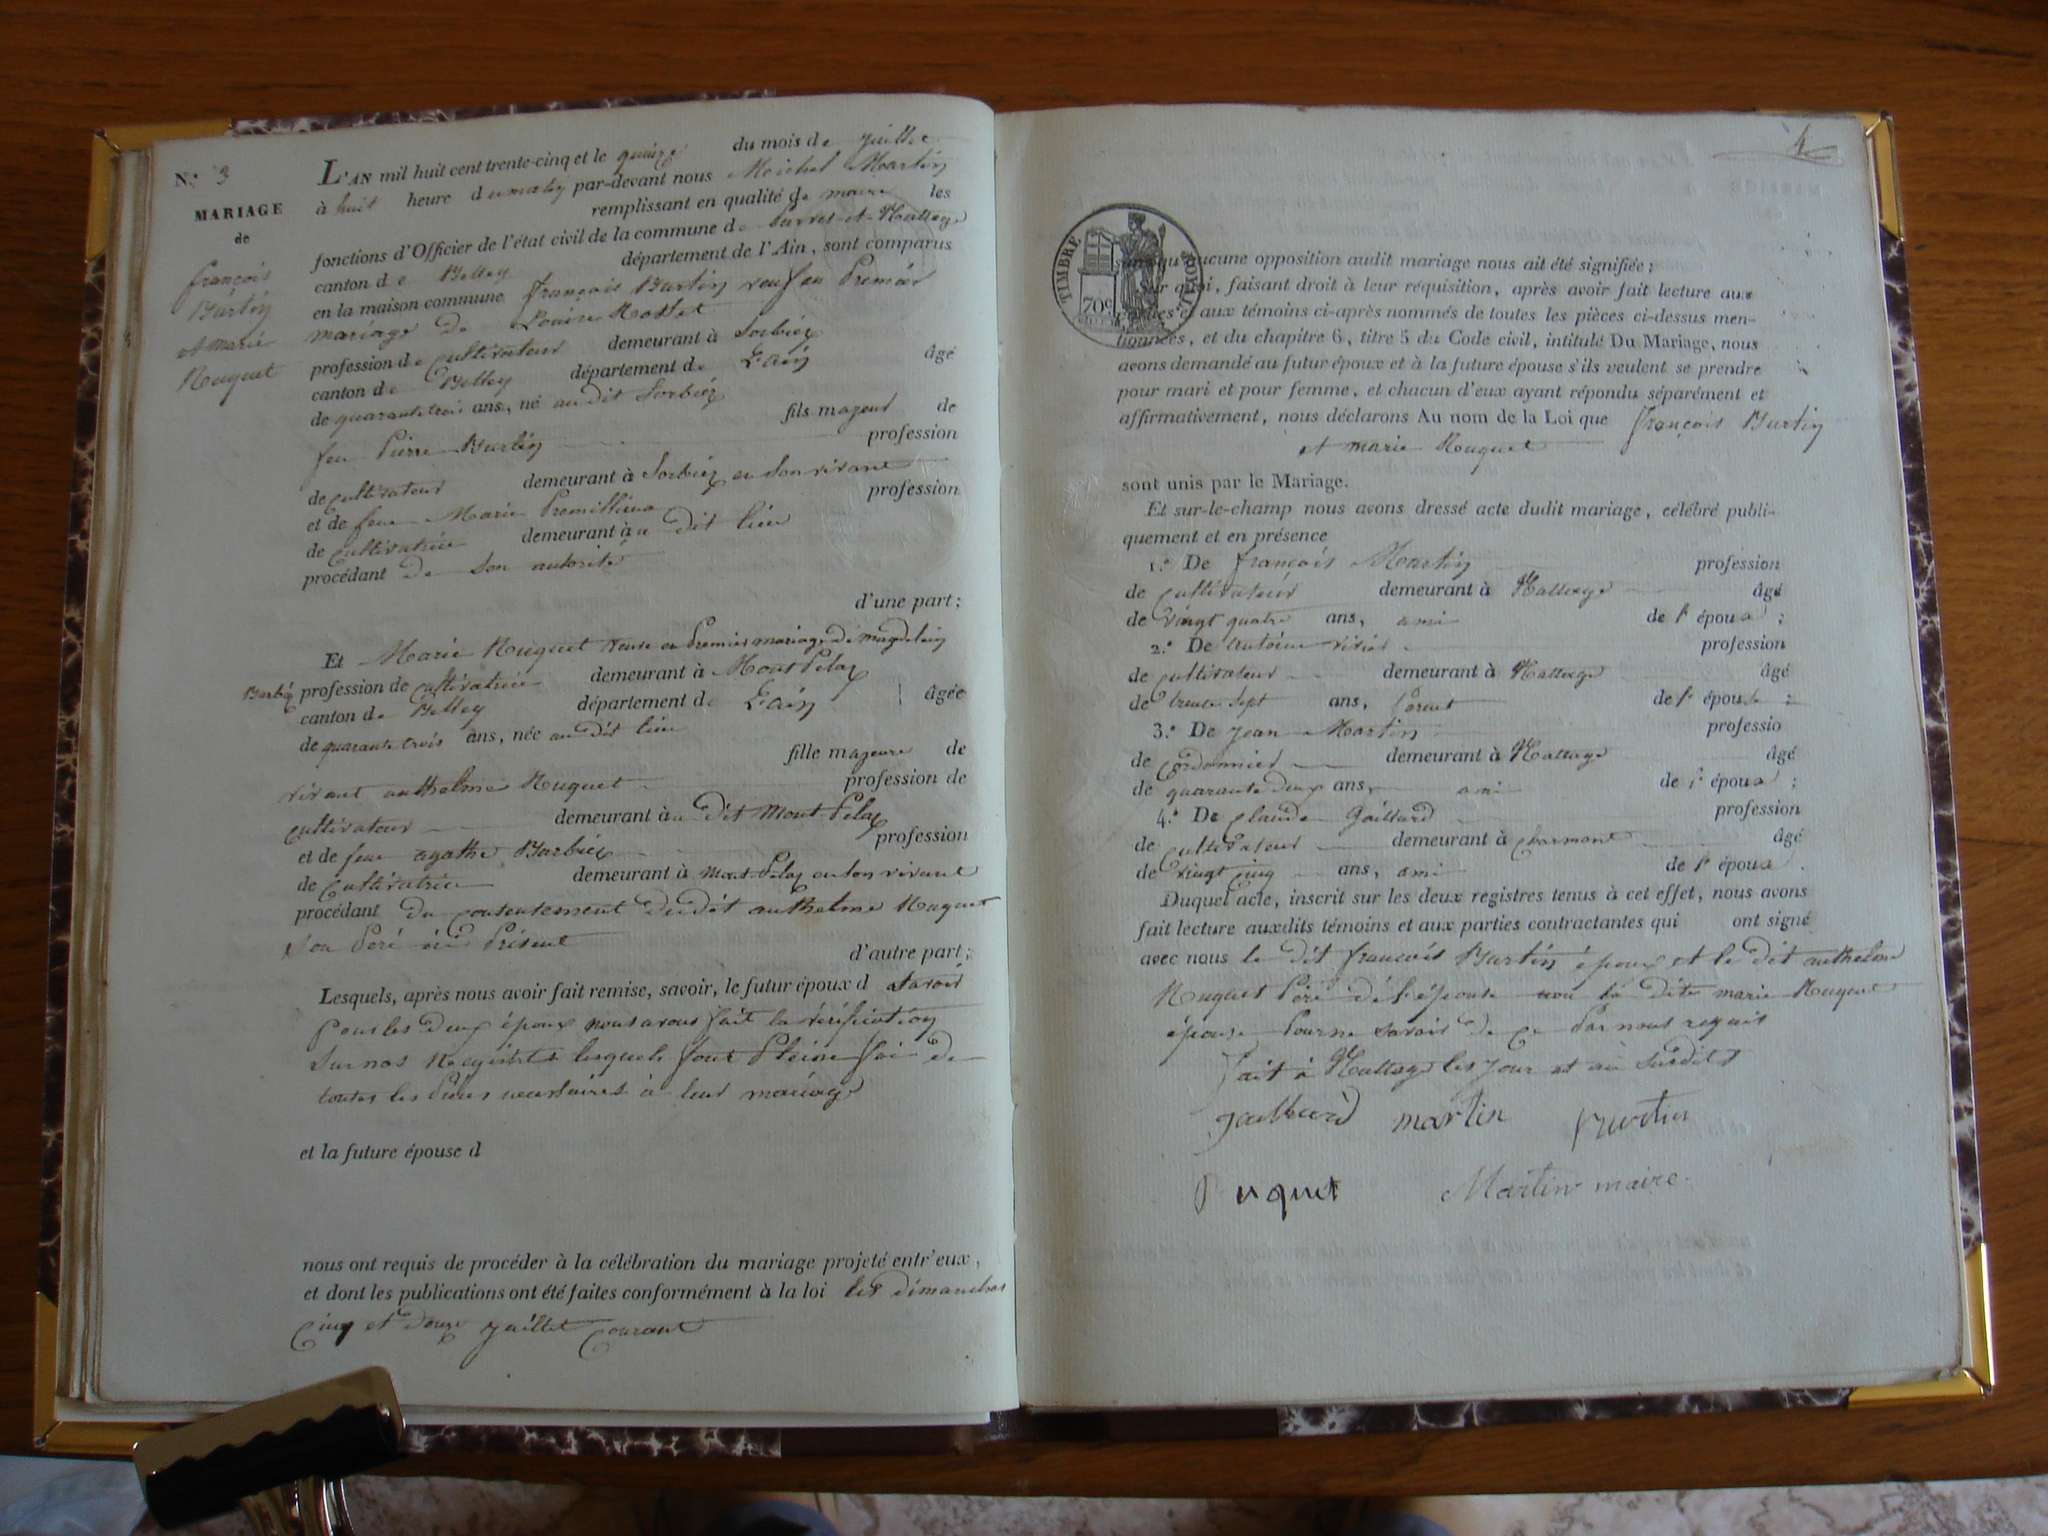 N.° 3
MARIAGE
de
françois
Burtin
et marie
Ruquet
L'AN mil huit cent trente-cinq et le quinze du mois de juillet
à huit heure du matin par-devant nous Michel Martin
remplissant en qualité de maire les
fonctions d'Officier de l'état civil de la commune de
canton de Belley département de l'Ain, sont comparus
en la maison commune françois Burtin veuf en Premier
mariage de Louise Rosset
profession de cultivateur demeurant à Sorbiez
canton de Belley département de L'ain âgé
de quarante trois ans, né au dit Sorbiez
fils majeur de
feu Pierre Burtin profession
de cultivateur demeurant à Sorbiez en son vivant
et de feue Marie Premillieux profession
de cultivatrice demeurant à u dit lieu
procédant de son autorité
d'une part;
Et Marie Ruquet veuve en Premier mariage de magdelein
Barbiez profession de cultivatrice demeurant à Mont Pelaz
canton de Belley département de L'ain âgée
de quarante trois ans, née au dit lieu
fille majeure de
vivant anthelme Ruquet profession de
cultivateur demeurant à u dit Mont Pelaz
et de feue agathe Barbiez profession
de cultivatrice demeurant à Mont Pelaz en son vivant
procédant du consentement dudit anthelme Ruquet
Son Peré ici Présent
d'autre part;
Lesquels, après nous avoir fait remise, savoir, le futur époux d Savoir
Pour les deux époux nous avons fait la vérification
Sur nos Registres lesquels font Pleine foi de
toutes les Pièces necessaires à leur mariage
et la future épouse d
nous ont requis de procéder à la célébration du mariage projeté entr'eux,
et dont les publications ont été faites conformément à la loi les dimanches
Cinq et douze juillet Courant
4
TIMBRE ROYAL
70c
sans qu'aucune opposition audit mariage nous ait été signifiée;
Sur quoi, faisant droit à leur réquisition, après avoir fait lecture aux
parties et aux témoins ci-après nommés de toutes les pièces ci-dessus men-
tionnées, et du chapitre 6, titre 5 du Code civil, intitulé Du Mariage, nous
avons demandé au futur époux et à la future épouse s'ils veulent se prendre
pour mari et pour femme, et chacun d'eux ayant répondu séparément et
affirmativement, nous déclarons Au nom de la Loi que françois Burtin
et marie Ruquet
sont unis par le Mariage.
Et sur-le-champ nous avons dressé acte dudit mariage, célébré publi-
quement et en présence
1.° De françois Martin profession
de cultivateur demeurant à Nattage âgé
de vingt quatre ans, ami de l'époux;
2.° De antoine profession
de cultivateur demeurant à Nattage âgé
de trente sept ans, Parent de l'épouse;
3.° De jean Martin professio
de Cordonnier demeurant à Nattage âgé
de quarante deux ans, ami de l'époux;
4.° De claude Gaillard profession
de cultivateur demeurant à charmont âgé
de vingt cinq ans, ami de l'époux.
Duquel acte, inscrit sur les deux registres tenus à cet effet, nous avons
fait lecture auxdits témoins et aux parties contractantes qui ont signé
avec nous le dit françois Burtin époux et le dit anthelme
Ruquet Péré de l'épouse non la dite marie Ruquet
épouse Pour ne savoir de ce Par nous requis
Fait à Nattage les jour et an susdits
gailliard martin Burtin
Ruquet Martin maire.